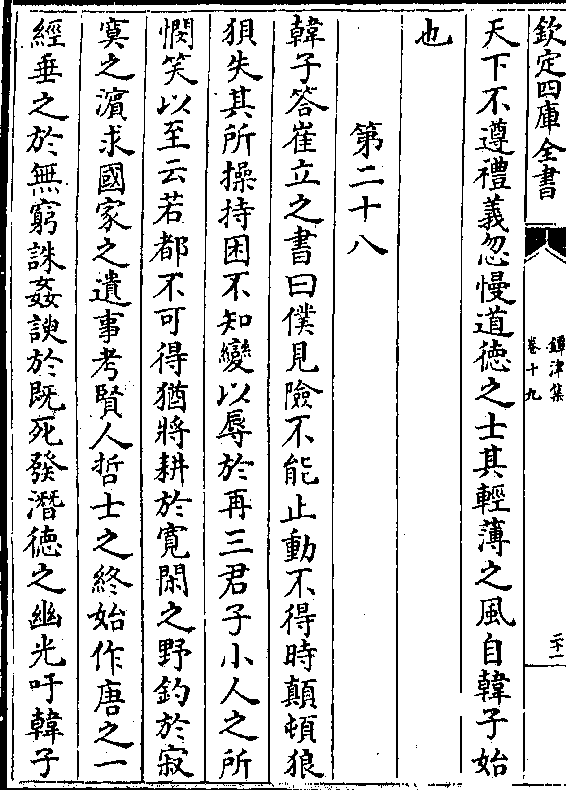 欽定四庫全書
鐔津集
卷十九
二十一
天下不遵禮義忽慢道徳之士其輕薄之風自韓子始
也
第二十八
韓子答崔立之書曰僕見險不能止動不得時顛頓狼
狽失其所操持困不知變以辱於再三君子小人之所
憫笑以至云若都不可得猶將耕於寛閑之野釣於寂
寞之濵求國家之遺事考賢人哲士之終始作唐之一
經垂之於無窮誅姦諛於既死發潛徳之幽光吁韓子